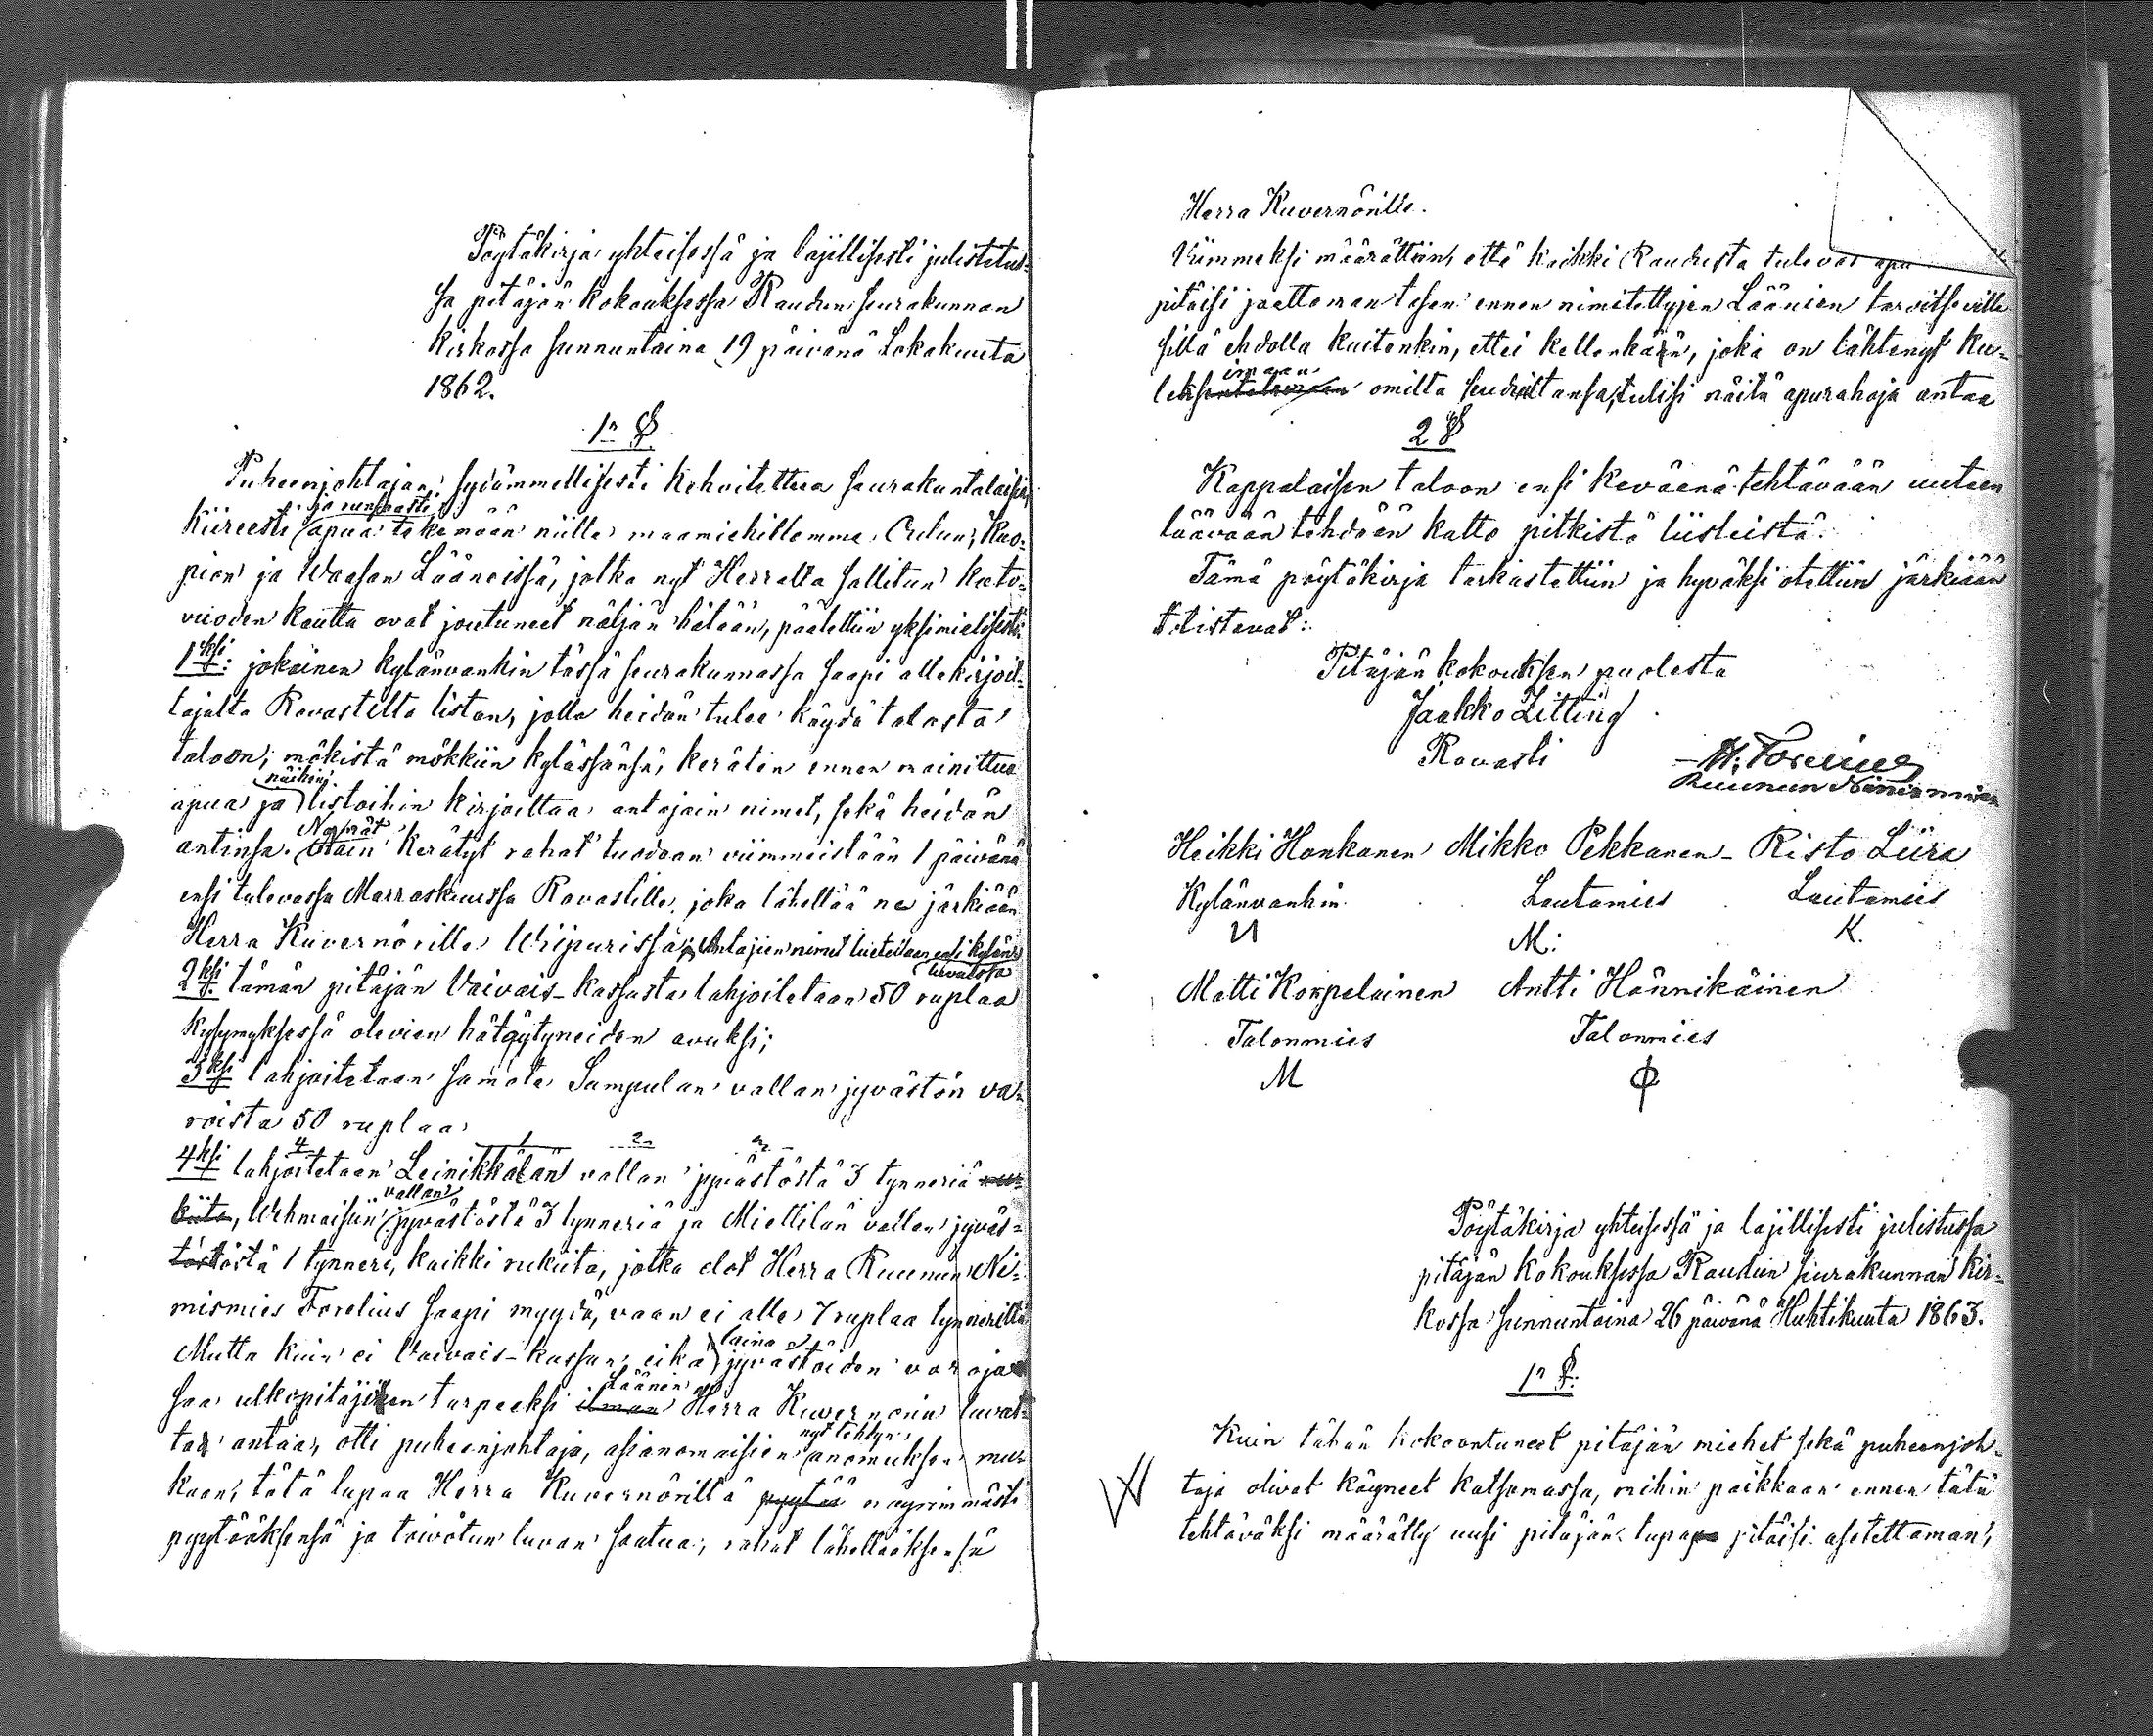 Pöytäkirja yhteisessä ja lajillisesti julistetus-
sa pitäjän kokouksessa Raudun seurakunnan
kirkossa sunnuntaina 19 päivänä Lokakuuta
1862.
1n §.
Puheenjohtajan, sydämmellisesti kehoitettua seurakuntalaisia,
ja runsaasti
kiireesti apua tekemään niille maamiehillemme Oulun, Kuo-
pion ja Waasan Lääneissä, jotka nyt Herralta sallitun kato-
vuoden kautta ovat joutuneet näljän hätään, päätettiin yksimielisesti:
1ksi: jokainen kylänvanhin tässä seurakunnassa saapi allekirjoit-
tajalta Rovastilta listan, jolla heidän tulee käydä talosta
taloon, mökistä mökkiin kylässänsä, keräten ennen mainittua
näihin
apua ja listoihin kirjoittaa antajain nimet, sekä heidän
Nämät
antinsa. Näin kerätyt rahat tuodaan viimmeistään 1 päivänä
ensi tulevassa Marraskuussa Rovastille, joka lähettää ne järkiään
Herra Kuvernörille Wiipurissa; Antajien nimet luetellaan ensi kylän-
luvussa
2ksi tämän pitäjän Vaivais-kassasta lahjoitetaan 50 ruplaa
kysymyksessä olevien hätäytyneiden avuksi;
3ksi lahjoitetaan samate Sumpulan vallan jyvästön va-
roista 50 ruplaa
4 1 2 3
4ksi lahjoitetaan Leinikkälän vallan jyvästöstä 3 tynneriä ru-
vallan
kiita, Wehmaisiin jyvästöstä 3 tynneriä ja Miettilän vallan jyväs-
töstöstä 1 tynneri, kaikki rukiita, jotka elot Herra Ruunun Ni-
mismies Forelius saapi myydä, vaan ei alle 7 ruplaa tynneriltä
laina
Mutta kuin ei Vaivais-kassan eikä jyvästöiden varoja
Läänin
saa ulkopitäjien tarpeeksi ilman Herra Kuvernörin luvat-
nyt tehdyn
ta antaa, otti puheenjohtaja, asianomaisien anomuksen mu-
kaan, tätä lupaa Herra Kuvernöriltä pyytää nöyrimmästi
pyytääksensä ja toivotun luvan saatua, rahat lähettääksensä
Herra Kuvernörille.
Viimmeksi määrättiin, että kaikki Raudusta tulevat apu
pitäisi jaettaman tasan ennen nimitettyjen Läänien tarvitseville
sillä ehdolla kuitenkin, ettei kellenkään, joka on lähtenyt ku-
imaan
leksentelemaan omilta seuduiltansa, tulisi näitä apurahoja antaa
2 §
Kappalaisen taloon ensi keväänä tehtävään uuteen
läävään tehdään katto pitkistä liisteistä.
Tämä pöytäkirja tarkastettiin ja hyväksi otettiin järkiään
todistavat:
Pitäjän kokouksen puolesta
Jaakko Zitting
Rovasti
H. Forelius
Ruunun Nimismies
Heikki Honkanen Mikko Pekkanen - Risto Liira
Kylänvanhin Lautamies Lautamies
M: K.
Matti Korpelainen Antti Hännikäinen
Talonmies Talonmies
M Φ
Pöytäkirja yhteisessä ja lajillisesti julistussa
pitäjän kokouksessa Raudun seurakunnan kir-
kossa sunnuntaina 26 päivänä Huhtikuuta 1863.
1n §:
Kuin tähän kokoontuneet pitäjän miehet sekä puheenjoh-
taja olivat käyneet katsomassa, mihin paikkaan ennen tätä
tehtäväksi määrätty uusi pitäjän tupa pitäisi asetettaman,